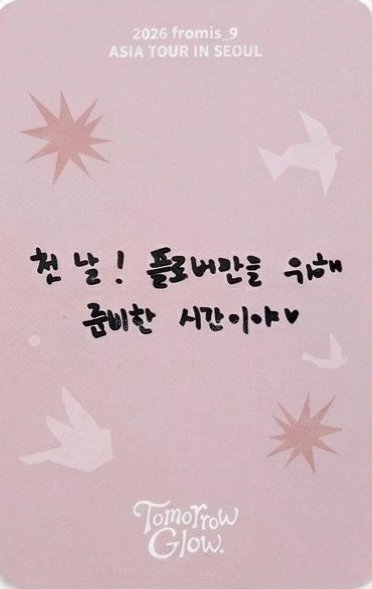 2026 fromis_9
ASIA TOUR IN SEOUL
첫 날! 플로버만을 위해
준비한 시간이야♥
Tomorrow
Glow.